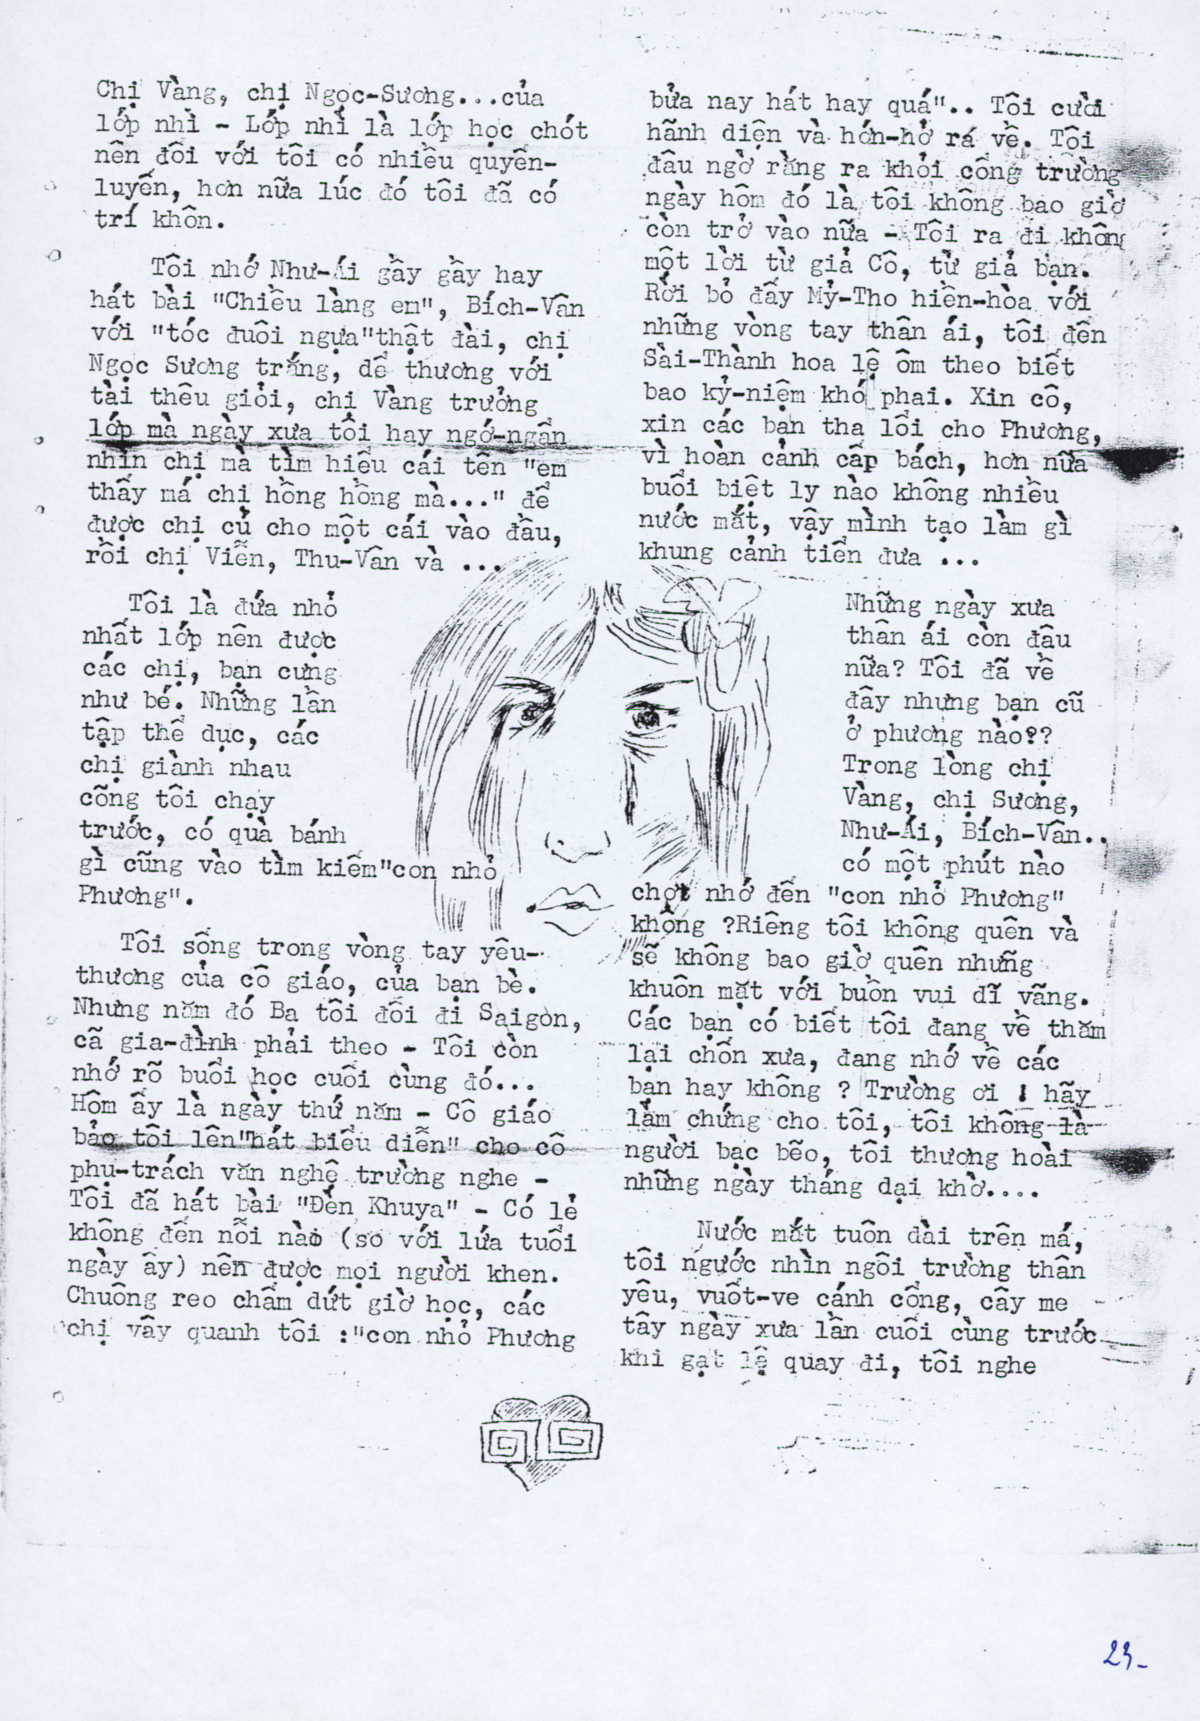 Chị Vàng, chị Ngọc-Sương...của
lớp nhì - Lớp nhì là lớp học chót
nên đối với tôi có nhiều quyến-
luyến, hơn nữa lúc đó tôi đã có
trí khôn.
Tôi nhớ Như-Ái gầy gầy hay
hát bài "Chiều làng em", Bích-Vân
với "tóc đuôi ngựa"thật đài, chị
Ngọc Sương trắng, dễ thương với
tài thêu giỏi, chị Vàng trưởng
lớp mà ngày xưa tôi hay ngớ-ngẩn
nhìn chị mà tìm hiểu cái tên "em
thấy má chị hồng hồng mà..." để
được chị củ cho một cái vào đầu,
rồi chị Viễn, Thu-Vân và ...
Tôi là đứa nhỏ
nhất lớp nên được
các chị, bạn cưng
như bé. Những lần
tập thể dục, các
chị giành nhau
cõng tôi chạy
trước, có quà bánh
gì cũng vào tìm kiếm"con nhỏ
Phương".
Tôi sống trong vòng tay yêu-
thương của cô giáo, của bạn bè.
Nhưng năm đó Ba tôi đổi đi Saigòn,
cã gia-đình phải theo - Tôi còn
nhớ rõ buổi học cuối cùng đó...
Hôm ấy là ngày thứ năm - Cô giáo
bảo tôi lên"hát biểu diễn" cho cô
phụ-trách văn nghệ trường nghe -
Tôi đã hát bài "Đèn Khuya" - Có lẻ
không đến nỗi nào (so với lứa tuổi
ngày ấy) nên được mọi người khen.
Chuông reo chấm dứt giờ học, các
chị vây quanh tôi :"con nhỏ Phương
bửa nay hát hay quá".. Tôi cười
hãnh diện và hớn-hở rá về. Tôi
đâu ngờ rằng ra khỏi cổng trường
ngày hôm đó là tôi không bao giờ
còn trở vào nữa - Tôi ra đi không
một lời từ giả Cô, từ giả bạn.
Rời bỏ đấy Mỷ-Tho hiền-hòa với
những vòng tay thân ái, tôi đến
Sài-Thành hoa lệ ôm theo biết
bao kỷ-niệm khó phai. Xin cô,
xin các bạn tha lổi cho Phương,
vì hoàn cảnh cấp bách, hơn nữa
buổi biệt ly nào không nhiều
nước mắt, vậy mình tạo làm gì
khung cảnh tiển đưa ...
Những ngày xưa
thân ái còn đâu
nữa? Tôi đã về
đây nhưng bạn cũ
ở phương nào??
Trong lòng chị
Vàng, chị Sương,
Như-Ái, Bích-Vân..
có một phút nào
chợt nhớ đến "con nhỏ Phương"
không ?Riêng tôi không quên và
sẽ không bao giờ quên những
khuôn mặt với buồn vui dĩ vãng.
Các bạn có biết tôi đang về thăm
lại chốn xưa, đang nhớ về các
bạn hay không ? Trường ơi ! hãy
làm chứng cho tôi, tôi không là
người bạc bẽo, tôi thương hoài
những ngày tháng dại khờ....
Nước mắt tuôn dài trên má,
tôi ngước nhìn ngôi trường thân
yêu, vuốt-ve cánh cổng, cây me
tây ngày xưa lần cuối cùng trước
khi gạt lệ quay đi, tôi nghe
23-